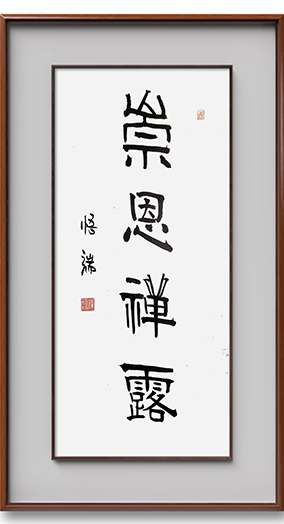 崇恩禅露
悟端